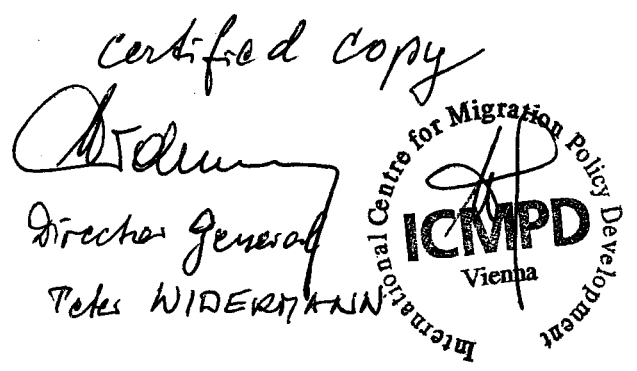 certified copy
Director General
Peter WIDERMANN
International Centre for Migration Policy Development
ICMPD
Vienna